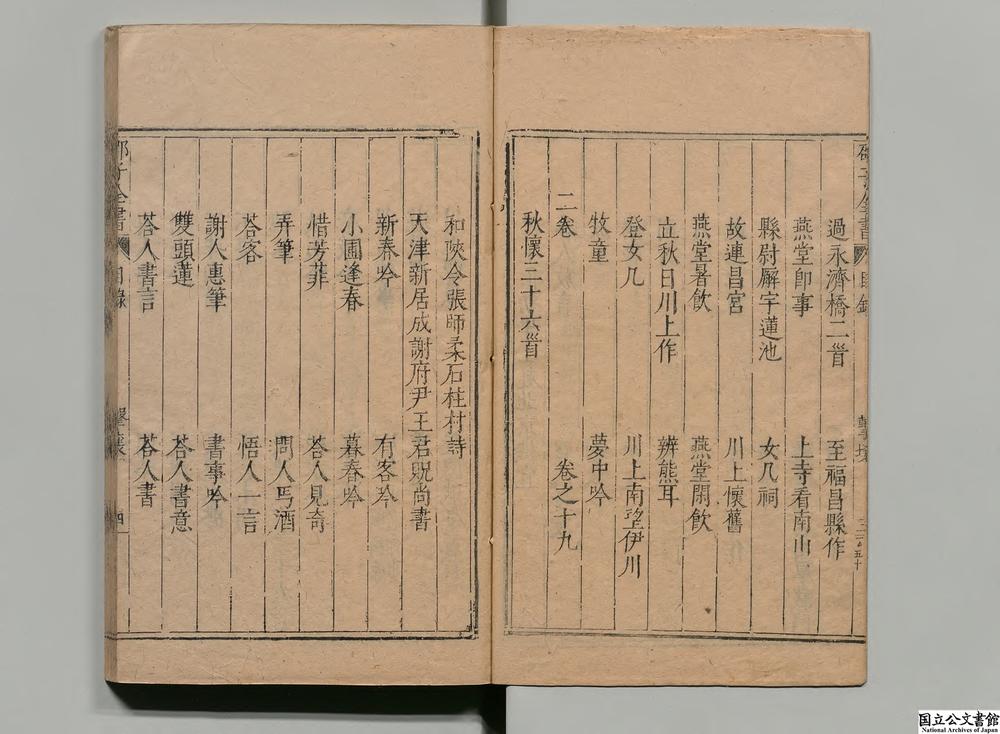 過永濟橋二首　至福昌縣作
燕堂卽事　上寺看南山
縣尉廨宇蓮池　女几祠
故連昌宮　川上懷舊
燕堂暑飲　燕堂閑飲
立秋日川上作　辨熊耳
登女几　川上南望伊川
牧童　夢中吟
二卷　卷之十九
秋懷三十六首
和陝令張師柔石柱村詩
天津新居成謝府尹王君貺尚書
新春吟　有客吟
小圃逢春　暮春吟
惜芳菲　荅人見寄
弄筆　問人丐酒
荅客　悟人一言
謝人惠筆　書事吟
雙頭蓮　荅人書意
荅人書言　荅人書
子全書　目錄　擊壤　四
国立公文書館
National Archives of Japan